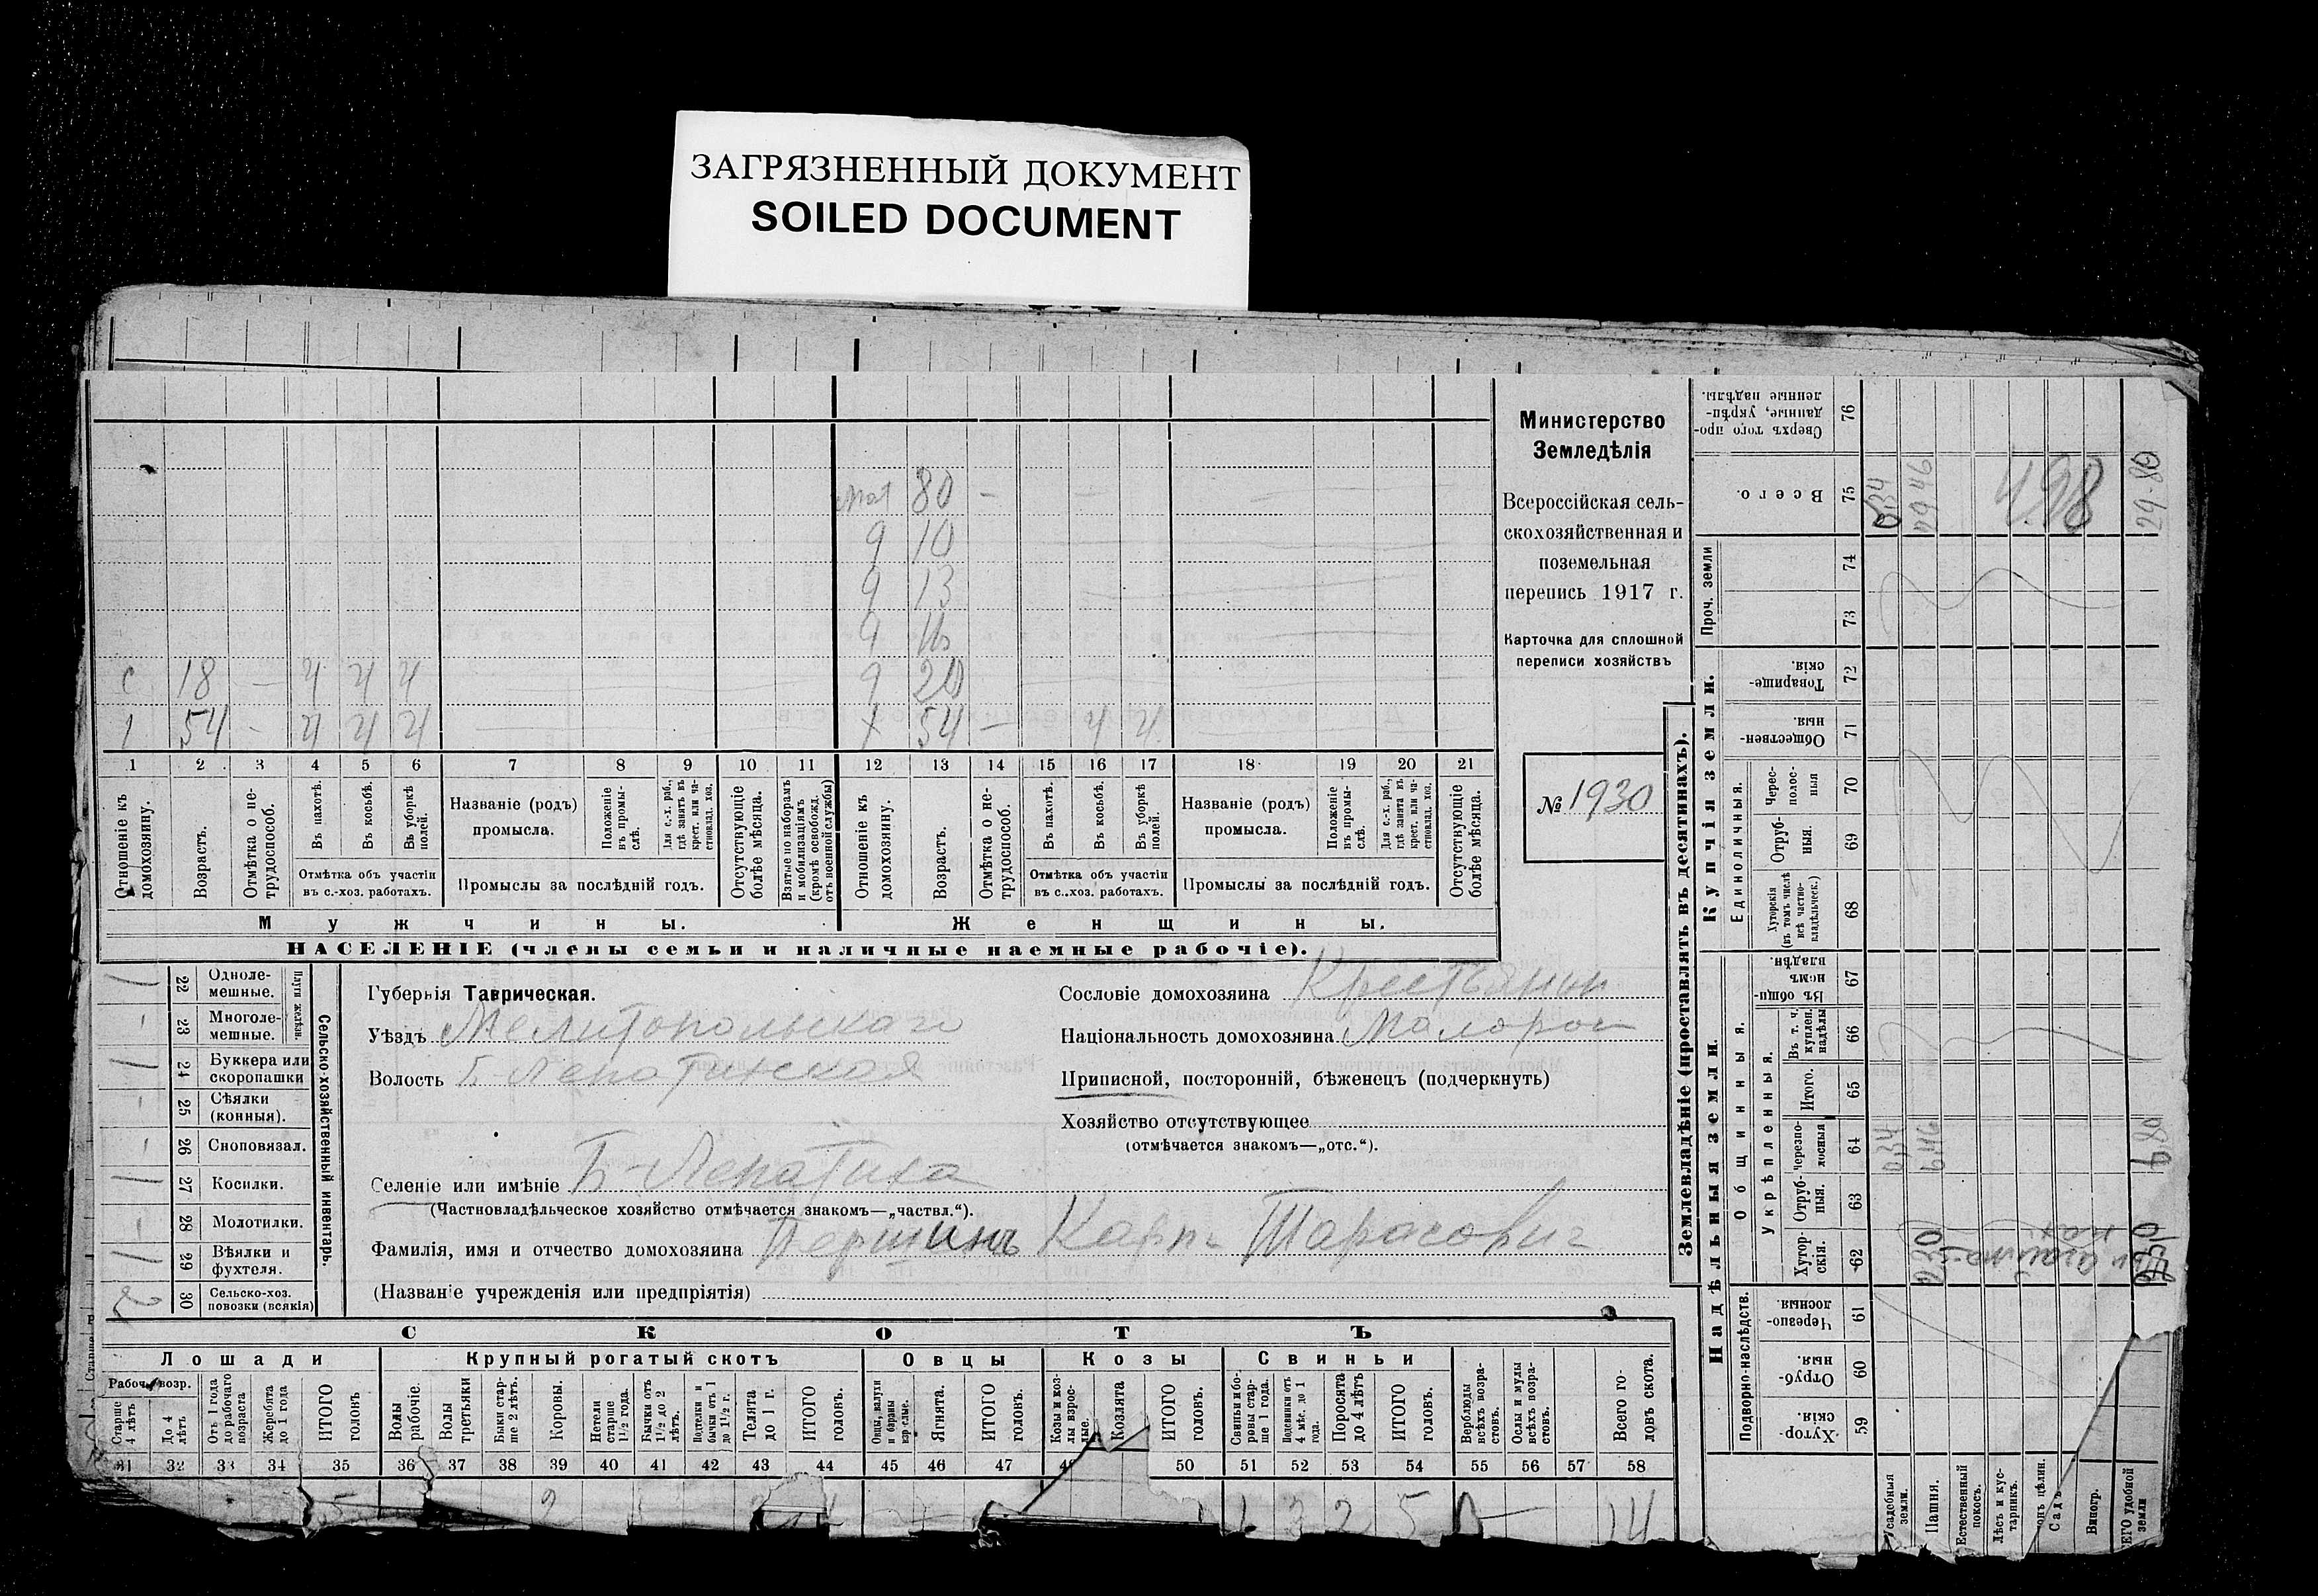 ЗАГРЯЗНЕННЫЙ ДОКУМЕНТ
SOILED DOCUMENT
мат 80 —
9 10
9 13
9
с 18 — ч ч ч 9 20
1 54 - ч ч ч + 54 — ч ч
1 2 3 4 5 6 7 8 9 10 11 12 13 14 15 16 17 18 19 20 21
Отношеніе къ домохозяину.
Возрастъ.
Отмѣтка о нетрудоспособ.
Въ пахотѣ.
Въ косьбѣ.
Въ уборкѣ полей.
Отмѣтка объ участіи въ с.-хоз. работахъ.
Названіе (родъ) промысла.
Положеніе въ промыслѣ.
Для с.-х. раб., гдѣ занятъ въ крест. или частновлад. хоз.
Промыслы за послѣдній годъ.
Отсутствующіе болѣе мѣсяца.
Взятые по наборамъ и мобилизаціямъ (кромѣ освобожд. отъ военной службы)
Отношеніе къ домохозяину.
Возрастъ.
Отмѣтка о нетрудоспособ.
Въ пахотѣ.
Въ косьбѣ.
Въ уборкѣ полей.
Отмѣтка объ участіи въ с.-хоз. работахъ.
Названіе (родъ) промысла.
Положеніе въ промыслѣ.
Для с.-х. раб., гдѣ занята въ крест. или частновлад. хоз.
Промыслы за послѣдній годъ.
Отсутствующіе болѣе мѣсяца.
Мужчины. Женщины.
НАСЕЛЕНІЕ (члены семьи и наличные наемные рабочіе).
Министерство
Земледѣлія
Всероссійская сель-
скохозяйственная и
поземельная
перепись 1917 г.
Карточка для сплошной
переписи хозяйствъ
№ 1930
Сельско-хозяйственный инвентарь.
Плуги желѣзн.
22 Одноле-мешные. 1
23 Многоле-мешные. -
24 Буккера или скоропашки 1
25 Сѣялки (конныя). -
26 Сноповязал. -
27 Косилки. 1
28 Молотилки. -
29 Вѣялки и фухтеля. 1
30 Сельско-хоз. повозки (всякія) 2
Губернія Таврическая.
Уѣздъ Мелитопольскаго
Волость Б-Лепатихская
Селеніе или имѣніе Б-Лепатиха
(Частновладѣльческое хозяйство отмѣчается знакомъ—„частвл.“).
Фамилія, имя и отчество домохозяина Першинъ Карпъ Тарасович
(Названіе учрежденія или предпріятія)
Сословіе домохозяина Крестьянин
Національность домохозяина Малорос
Приписной, посторонній, бѣженецъ (подчеркнуть)
Хозяйство отсутствующее
(отмѣчается знакомъ—„отс.“).
СКОТЪ
Лошади Крупный рогатый скотъ Овцы Козы Свиньи
Рабоч. возр.
Старше 4 лѣтъ
До 4 лѣтъ
Отъ 1 года до рабочаго возраста
Жеребята до 1 года
ИТОГО головъ
Волы рабочіе.
Волы третьяки
Быки старше 2 лѣтъ.
Коровы.
Нетели старше 1½ года.
Бычки отъ 1½ до 2 лѣтъ.
Подтелки и бычки отъ 1 до 1½ г.
Телята до 1 г.
ИТОГО головъ.
Овцы, валухи и бараны взрослые.
Ягнята.
ИТОГО головъ.
Козы и козлы взрослые.
Козлята
ИТОГО головъ.
Свиньи и боровы старше 1 года.
Подсвинки отъ 4 мѣс. до 1 года.
Поросята до 4 лѣтъ
ИТОГО головъ.
Верблюды всѣхъ возрастовъ.
Ослы и мулы всѣхъ возрастовъ.
Всего головъ скота.
31 32 33 34 35 36 37 38 39 40 41 42 43 44 45 46 47 50 51 52 53 54 55 56 57 58
5 2 4 1 3 2 5 — 14
Землевладѣніе (проставлять въ десятинахъ).
Надѣльныя земли. Купчія земли.
Сверхъ того проданные, укрѣпленные надѣлы. 76
Всего. 75 0.34 29 46 4.98 29-80
Проч. земли 74 73
Товарищескія. 72
Общественныя. 71
Единоличныя.
Чересполосныя 70
Отрубныя. 69
Хуторскія (въ томъ числѣ всѣ частновладѣльческ.) 68
Общинныя.
Въ общинномъ владѣн. 67
Въ т. ч. куплен. надѣлы 66
Укрѣпленныя.
Итого. 65
Черезполосныя 64 0.34 6.46 6.80
Отрубныя. 63
Хуторскія. 62
Подворно-наслѣдств.
Черезполосныя. 61
Отрубныя. 60
Хуторскія. 59
Усадебныя земли.
Пашня.
Естественный покосъ.
Лѣсъ и кустарникъ.
Садъ
Виногр.
ЕГО удобной земли